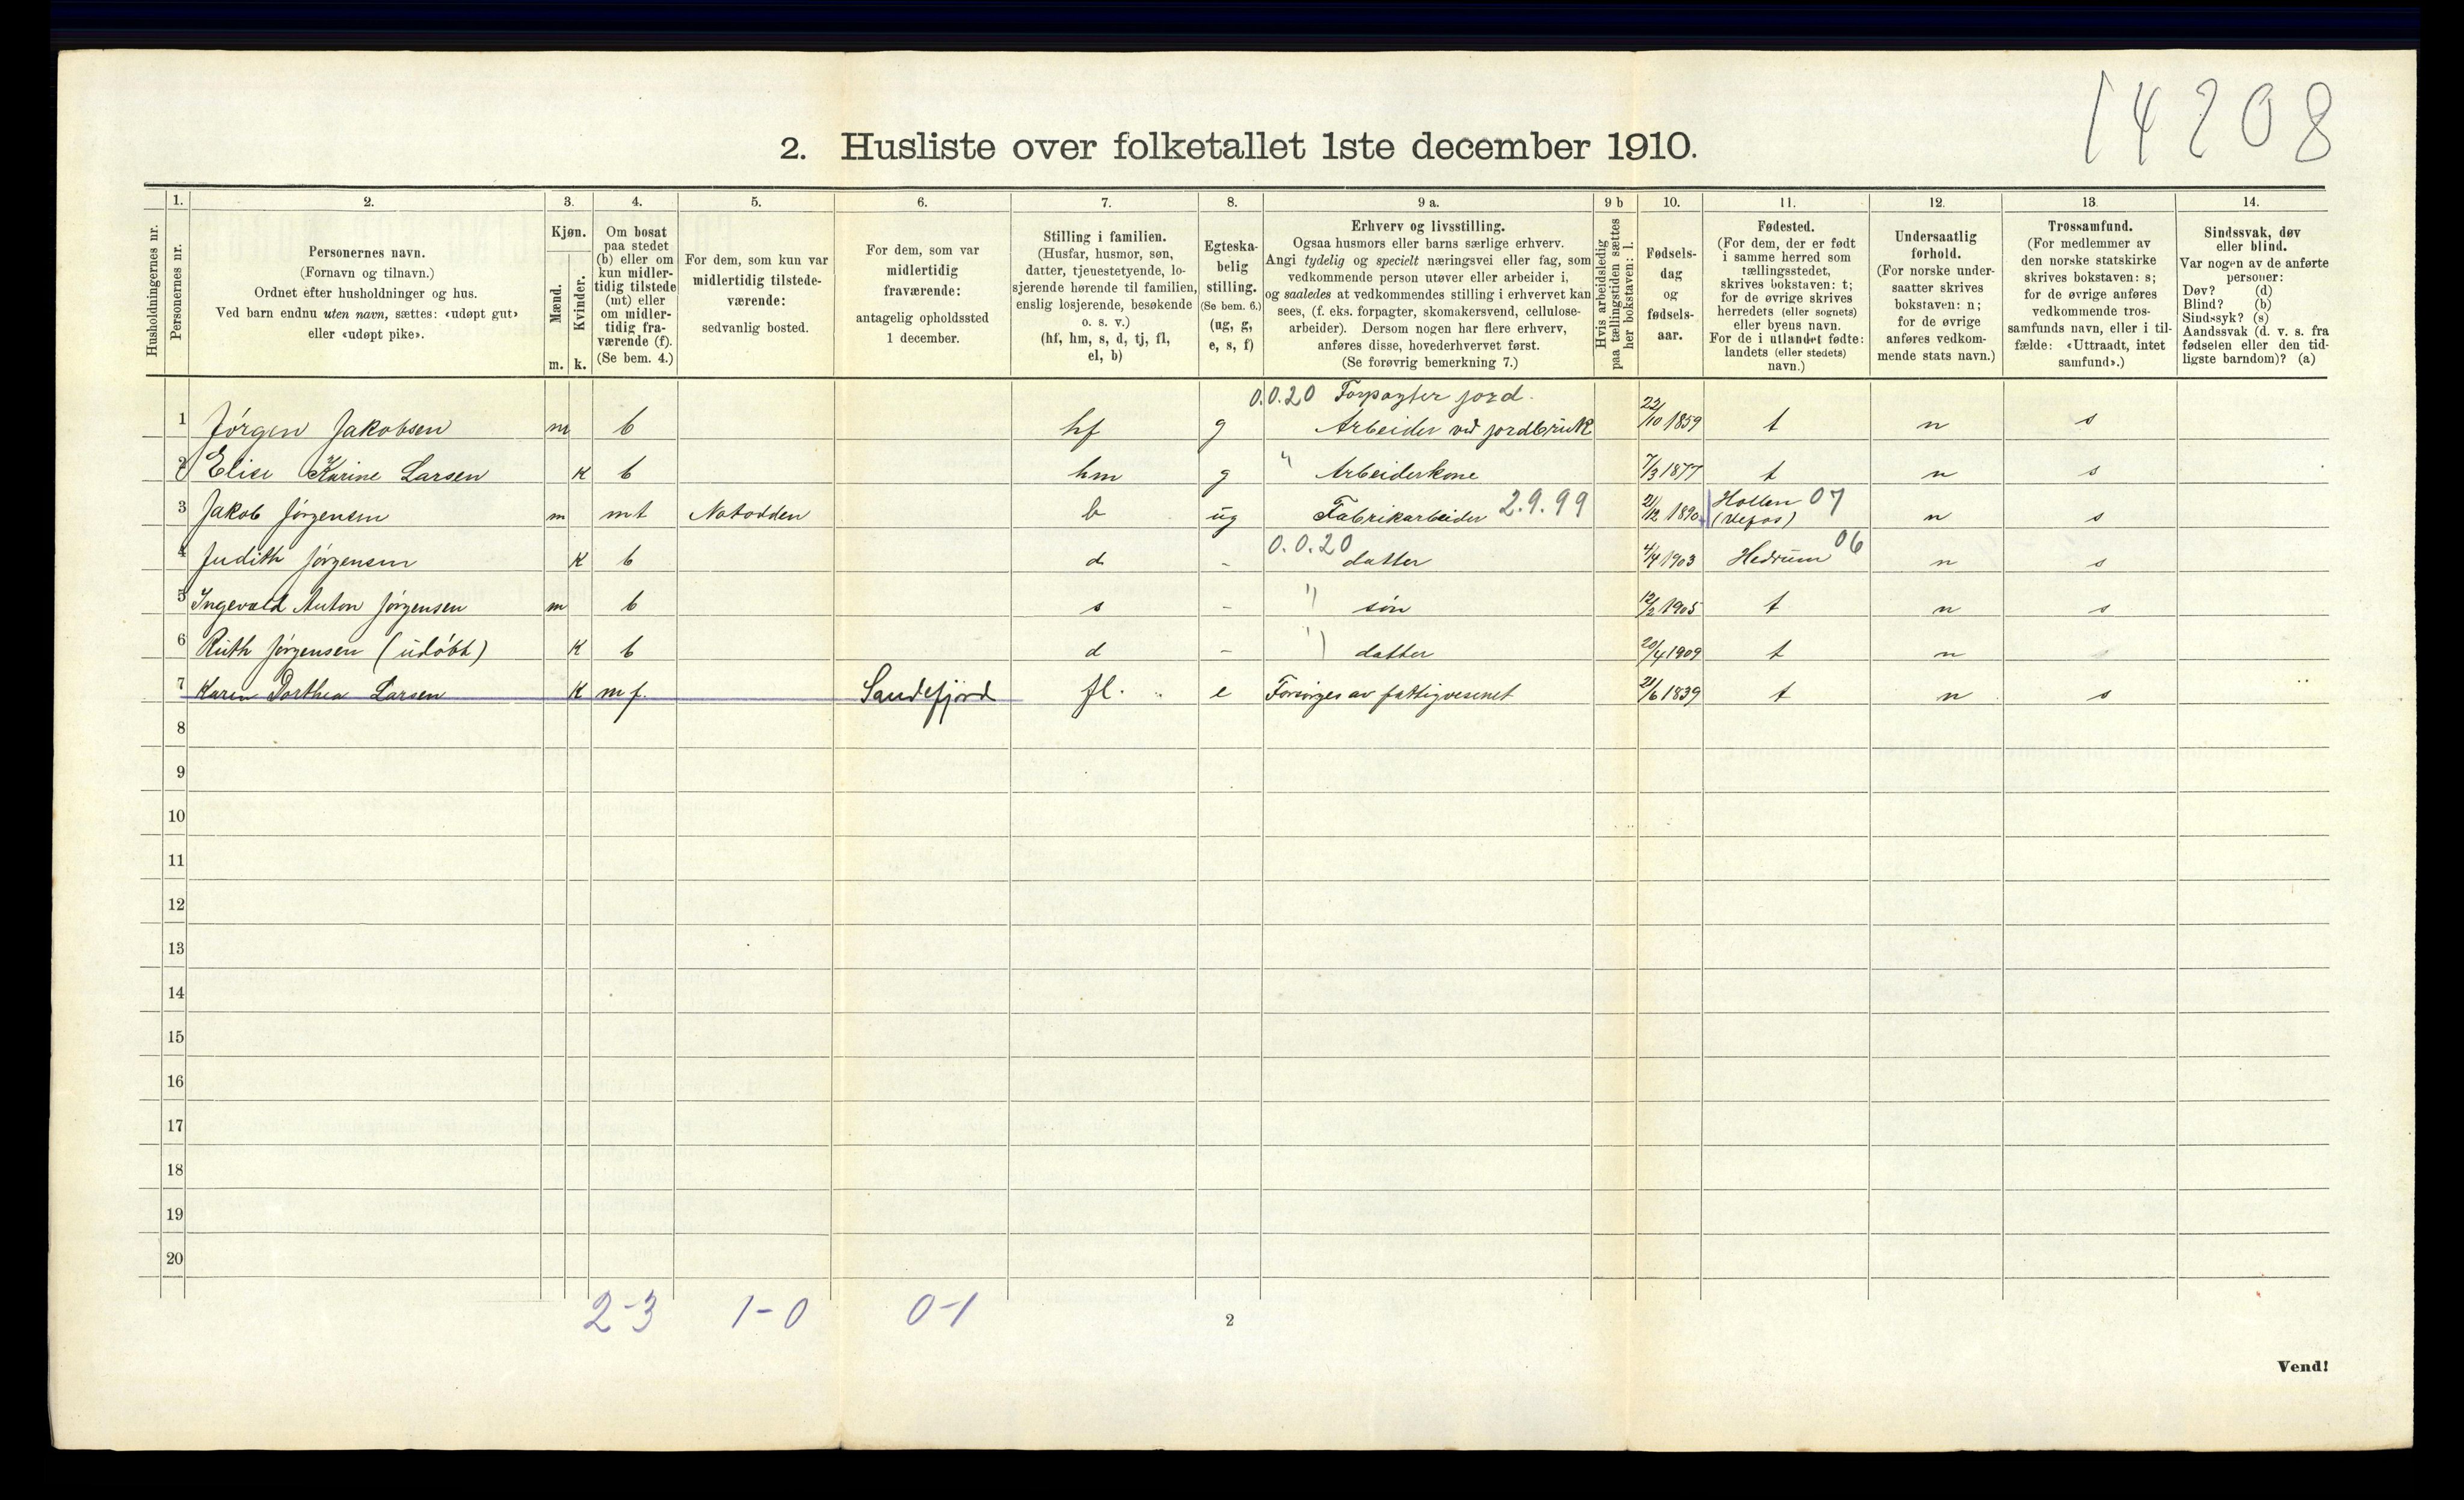 14208
2. Husliste over folketallet 1ste december 1910.
Husholdningernes nr.
1. Personernes nr.
2. Personernes navn.
(Fornavn og tilnavn.)
Ordnet efter husholdninger og hus.
Ved barn endnu uten navn, sættes: «udøpt gut»
eller «udøpt pike».
3. Kjøn.
Mænd. m.
Kvinder. k.
4. Om bosat
paa stedet
(b) eller om
kun midler-
tidig tilstede
(mt) eller
om midler-
tidig fra-
værende (f).
(Se bem. 4.)
5. For dem, som kun var
midlertidig tilstede-
værende:
sedvanlig bosted.
6. For dem, som var
midlertidig
fraværende:
antagelig opholdssted
1 december.
7. Stilling i familien.
(Husfar, husmor, søn,
datter, tjenestetyende, lo-
sjerende hørende til familien,
enslig losjerende, besøkende
o. s. v.)
(hf, hm, s, d, tj, fl,
el, b)
8. Egteska-
belig
stilling.
(Se bem. 6.)
(ug, g,
e, s, f)
9 a. Erhverv og livsstilling.
Ogsaa husmors eller barns særlige erhverv.
Angi tydelig og specielt næringsvei eller fag, som
vedkommende person utøver eller arbeider i,
og saaledes at vedkommendes stilling i erhvervet kan
sees, (f. eks. forpagter, skomakersvend, cellulose-
arbeider). Dersom nogen har flere erhverv,
anføres disse, hovederhvervet først.
(Se forøvrig bemerkning 7.)
9 b Hvis arbeidsledig
paa tællingstiden sættes
her bokstaven: l.
10. Fødsels-
dag
og
fødsels-
aar.
11. Fødested.
(For dem, der er født
i samme herred som
tællingsstedet,
skrives bokstaven: t;
for de øvrige skrives
herredets (eller sognets)
eller byens navn.
For de i utlandet fødte:
landets (eller stedets)
navn.)
12. Undersaatlig
forhold.
(For norske under-
saatter skrives
bokstaven: n;
for de øvrige
anføres vedkom-
mende stats navn.)
13. Trossamfund.
(For medlemmer av
den norske statskirke
skrives bokstaven: s;
for de øvrige anføres
vedkommende tros-
samfunds navn, eller i til-
fælde: «Uttraadt, intet
samfund».)
14. Sindssvak, døv
eller blind.
Var nogen av de anførte
personer:
Døv? (d)
Blind? (b)
Sindssyk? (s)
Aandssvak (d. v. s. fra
fødselen eller den tid-
ligste barndom)? (a)
0.0.20 Forpagter jord.
1 Jørgen Jakobsen m b hf g Arbeider ved jordbruk 22/10 1859 t n s
2 Elise Karine Larsen K b hm g " Arbeiderkone 7/3 1877 t n s
3 Jakob Jørgensen m mt Notodden b ug Fabrikarbeider 2.9.99 21/12 1890 Hollen 07
(Ulefos) n s
4 Judith Jørgensen K b d - 0.0.20 datter 4/4 1903 Hedrum 06 n s
5 Ingevald Anton Jørgensen m b s - " søn 12/2 1905 t n s
6 Ruth Jørgensen (udøbt) K b d - " datter 20/4 1909 t n
7 Karen Dorthea Larsen K mf. Sandefjord fl. e Forsørges av fattigvesenet 21/6 1839 t n s
8
9
10
11
12
13
14
15
16
17
18
19
20
2-3 1-0 0-1
2
Vend!